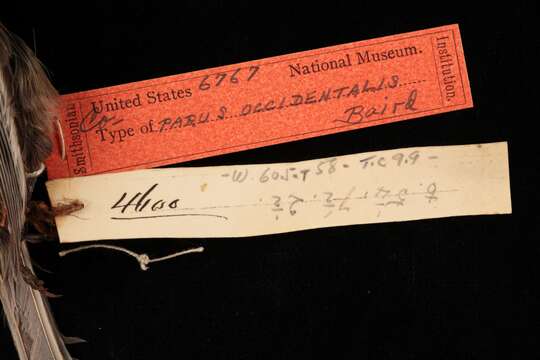 Smithsonian
United States 6767 National Museum.
Co-Type of PARUS OCCIDENTALIS
Baird
Institution.
-W. 60.5. T 58 - T.C 9.9-
4600